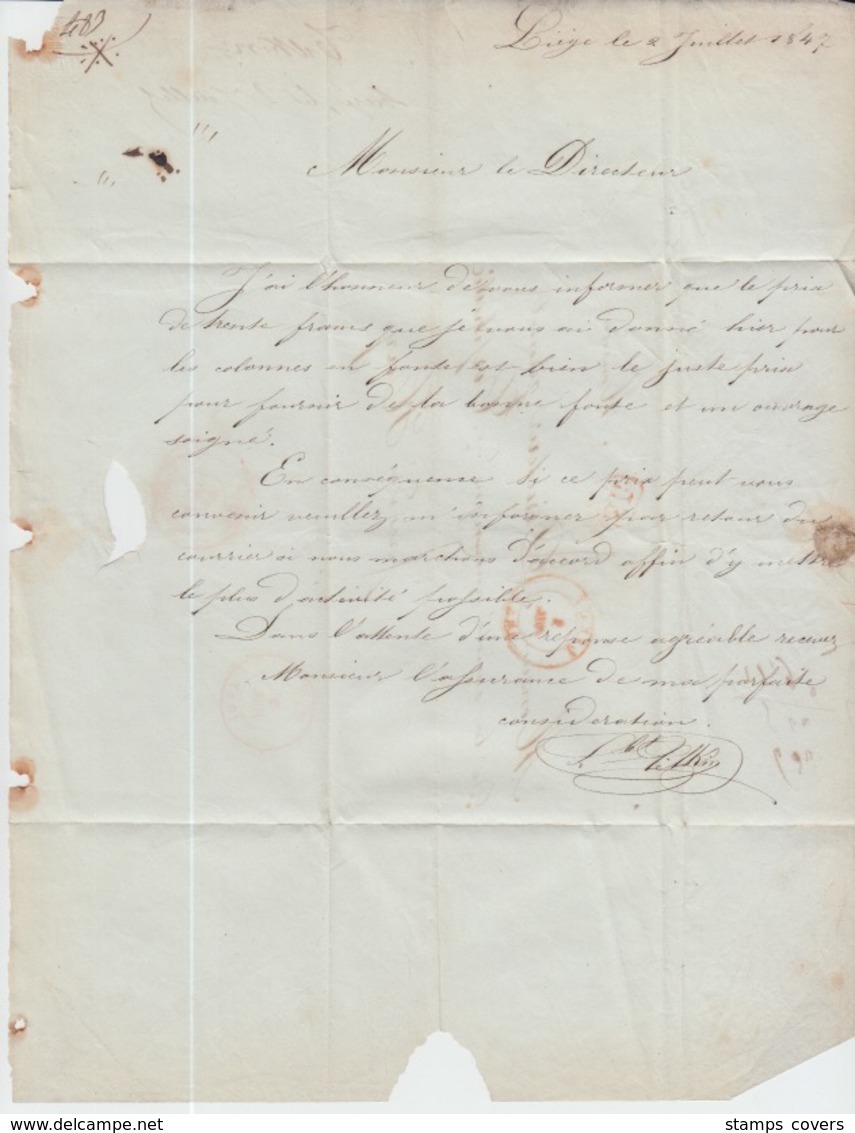 483
Liège le 2 Juillet 1847
Monsieur le Directeur
J'ai l'honneur de vous informer que le prix
de trente francs que je vous ai donné hier pour
les colonnes en fonte est bien le juste prix
pour fournir de la bonne fonte et un ouvrage
soigné.
En conséquence si ce prix peut vous
convenir veuillez m'informer par retour du
courrier si nous marchons d'accord affin d'y mettre
le plus d'activité possible.
Dans l'attente d'une réponse agréable recevez
Monsieur l'assurance de ma parfaite
consideration.
stamps covers